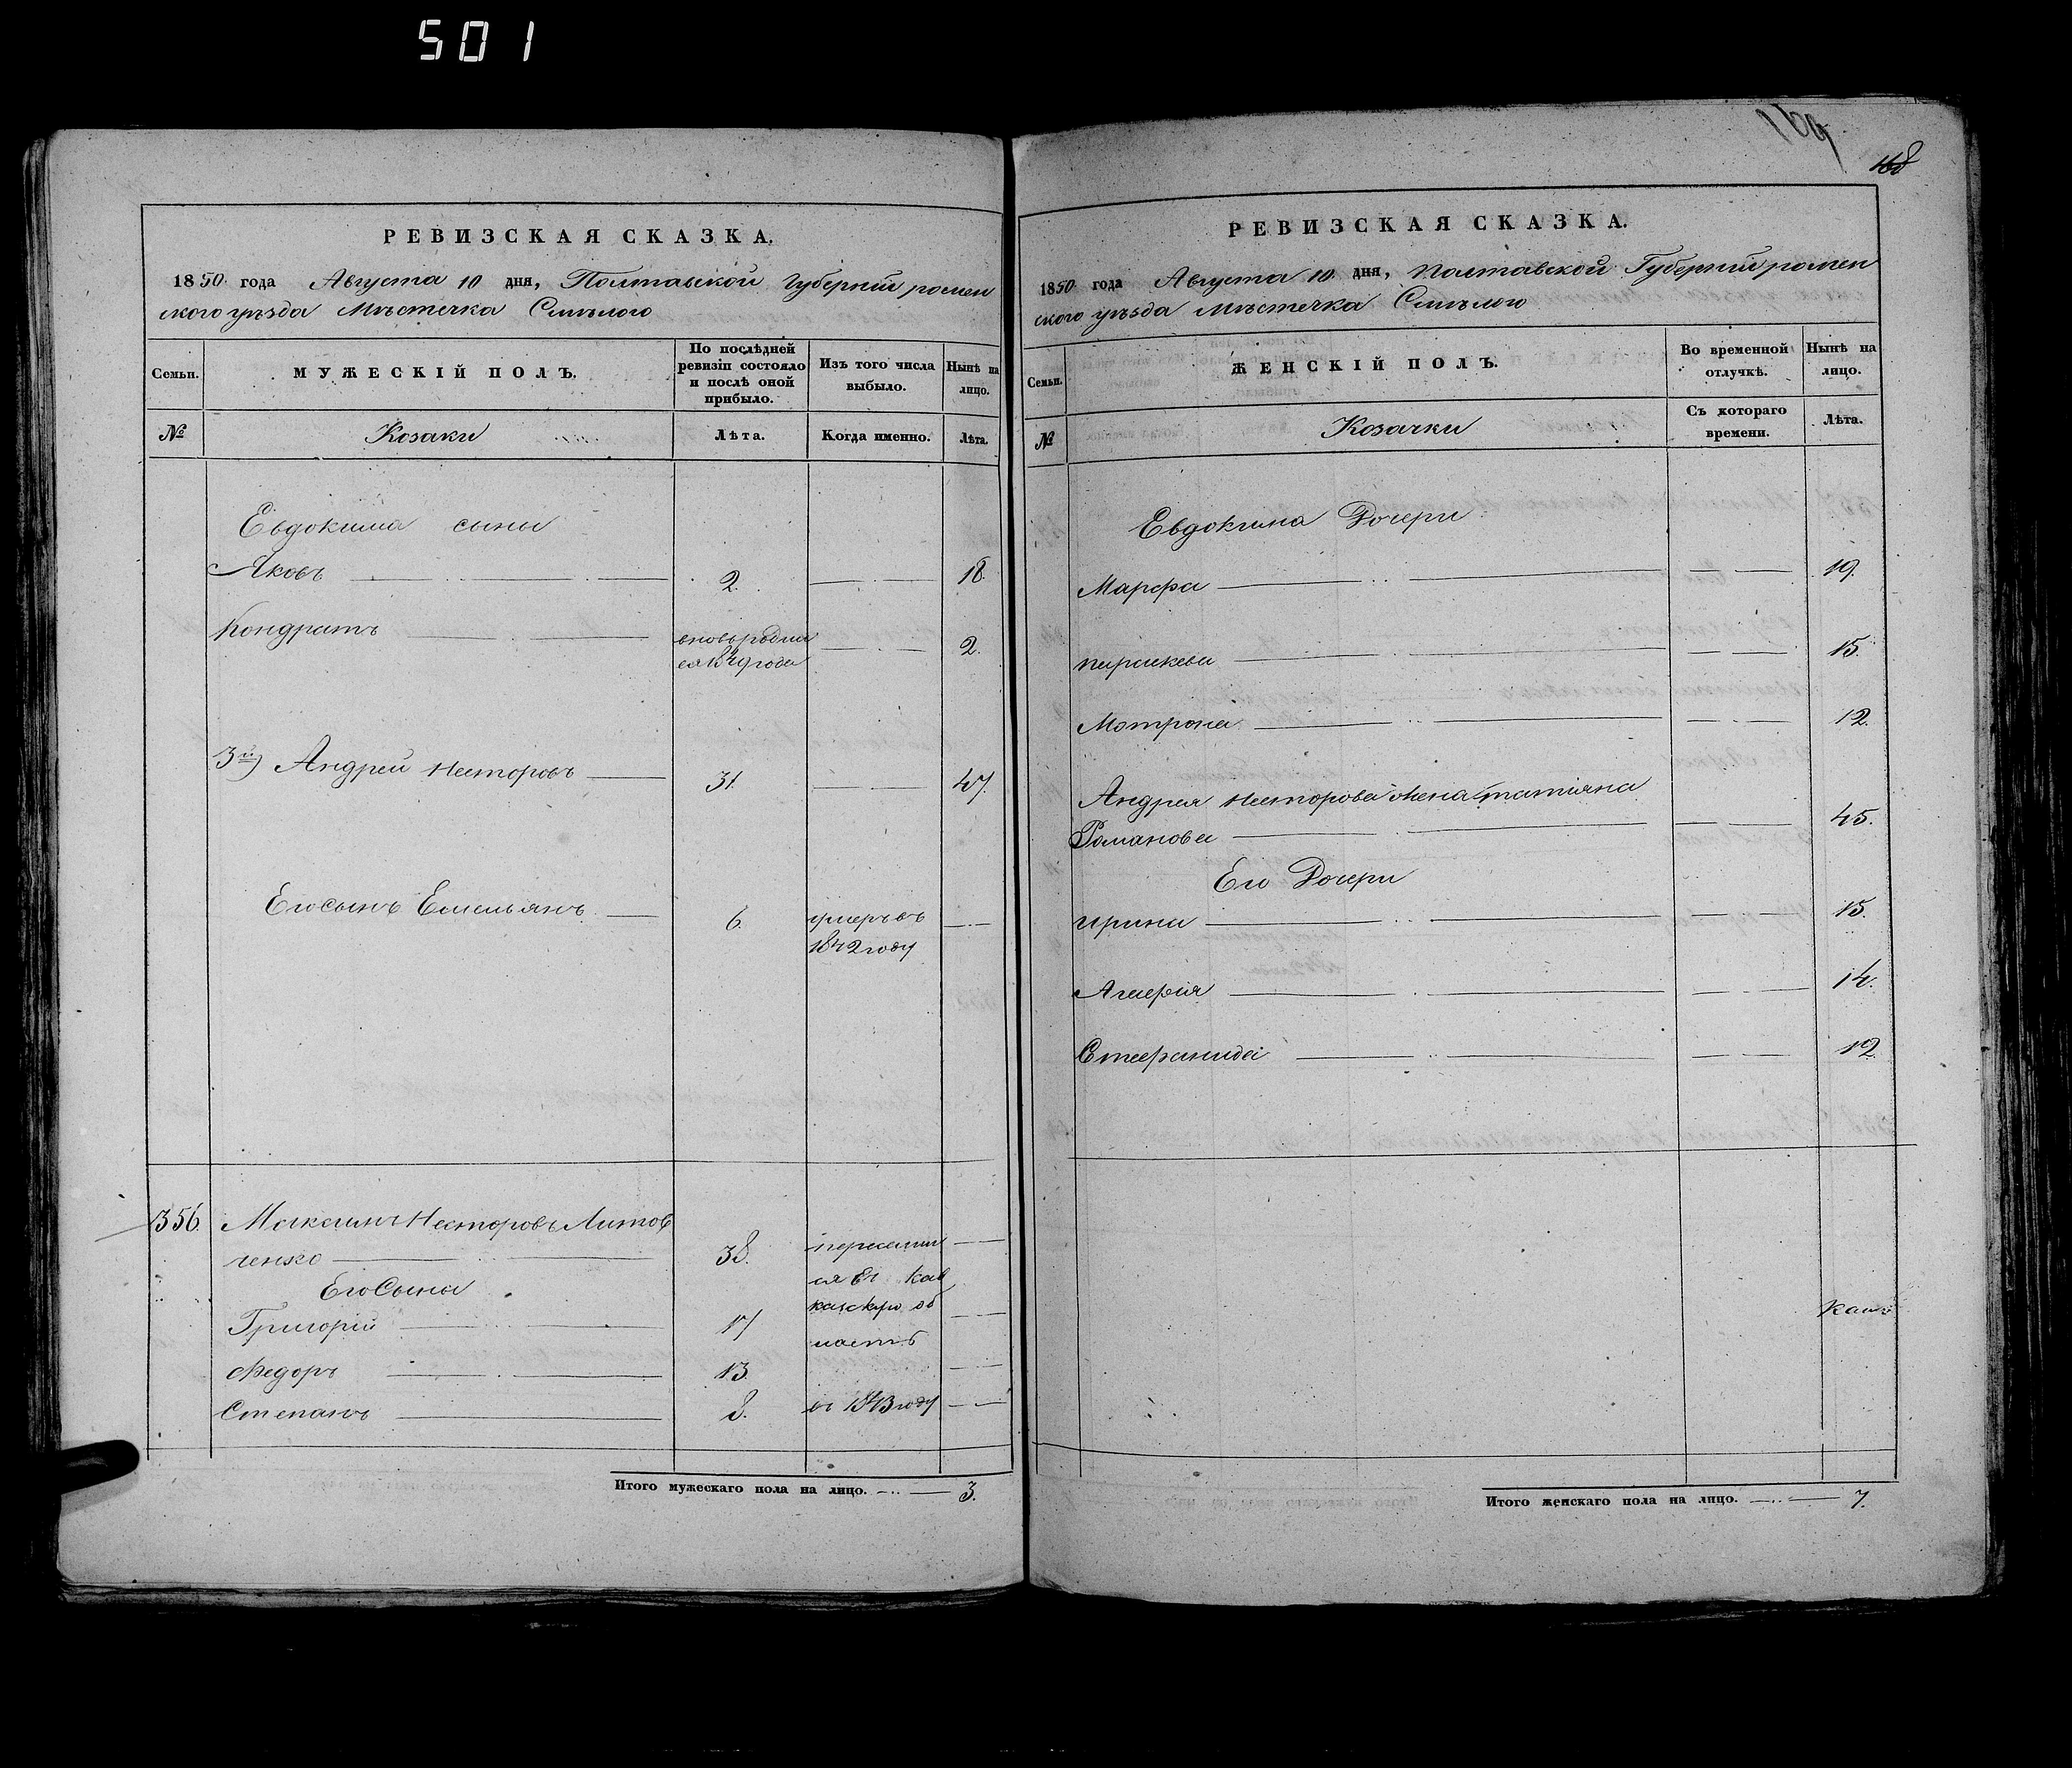 501
РЕВИЗСКАЯ СКАЗКА.
1850 года Августа 10 дня, Полтавской Губерній ромен
ского уѣзда Мѣстечка Смѣлого
Семьи.
МУЖЕСКІЙ ПОЛЪ.
По послѣдней ревизіи состояло и послѣ оной прибыло.
Изъ того числа выбыло.
Нынѣ на лицо.
№
Козаки
Лѣта.
Когда именно.
Лѣта.
Евдокима сыны
Яковъ 2. 18.
Кондратъ вновьродил 2.
ся 1849 года
3й) Андрей Несторовъ 31. 47.
Егосынъ Емельянъ 6. умеръ въ
1842 году
356. Максимъ Несторовъ Литов
ченко 38. переселил
Его Сыны ся въ Кав
Григорій 17 казскую об
ласть
Федоръ 13.
Степанъ 8. въ 1843 году
Итого мужескаго пола на лицо. 3.
169
168
РЕВИЗСКАЯ СКАЗКА.
1850 года Августа 10 дня, Полтавской Губерній ромен
ского уѣзда Мѣстечка Смѣлого
Семьи.
ЖЕНСКІЙ ПОЛЪ.
Во временной отлучкѣ.
Нынѣ на лицо.
№
Козачки
Съ котораго времени.
Лѣта.
Евдокима Дочери
Марфа 19.
параскева 15.
Мотрона 12.
Андрея Несторова жена татіяна
Романова 45.
Его Дочери
ирина 15.
14.
Стефанида 12
Итого женскаго пола на лицо. 7.